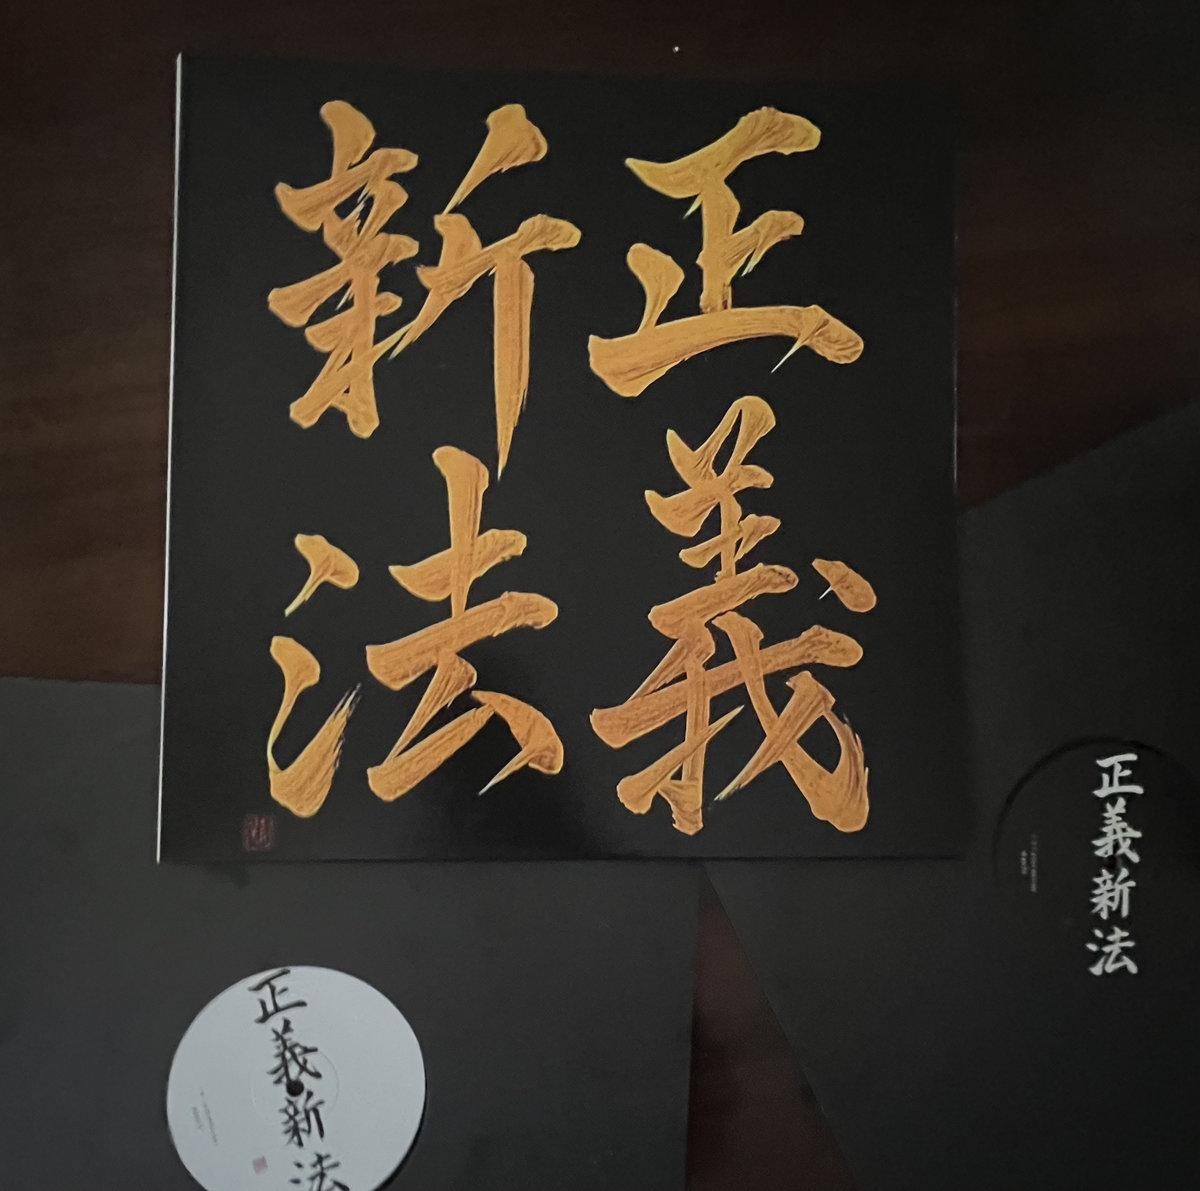 正義
新法
正義新法
正義新法